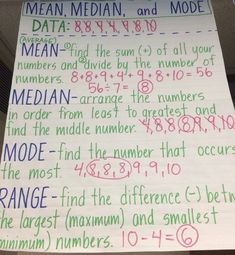 MEAN, MEDIAN, and MODE
DATA: 8, 8, 9, 4, 9, 8, 10
(AVERAGE)
MEAN-①find the sum (+) of all your
numbers and ②divide by the number of
numbers. 8+8+9+4+9+8+10=56
56÷7= 8
MEDIAN-arrange the numbers
in order from least to greatest and
find the middle number. 4, 8, 8, 8, 9, 9, 10
MODE-find the number that occurs
the most. 4, 8, 8, 8, 9, 9, 10
RANGE-find the difference (-) betw
the largest (maximum) and smallest
minimum) numbers. 10-4=6